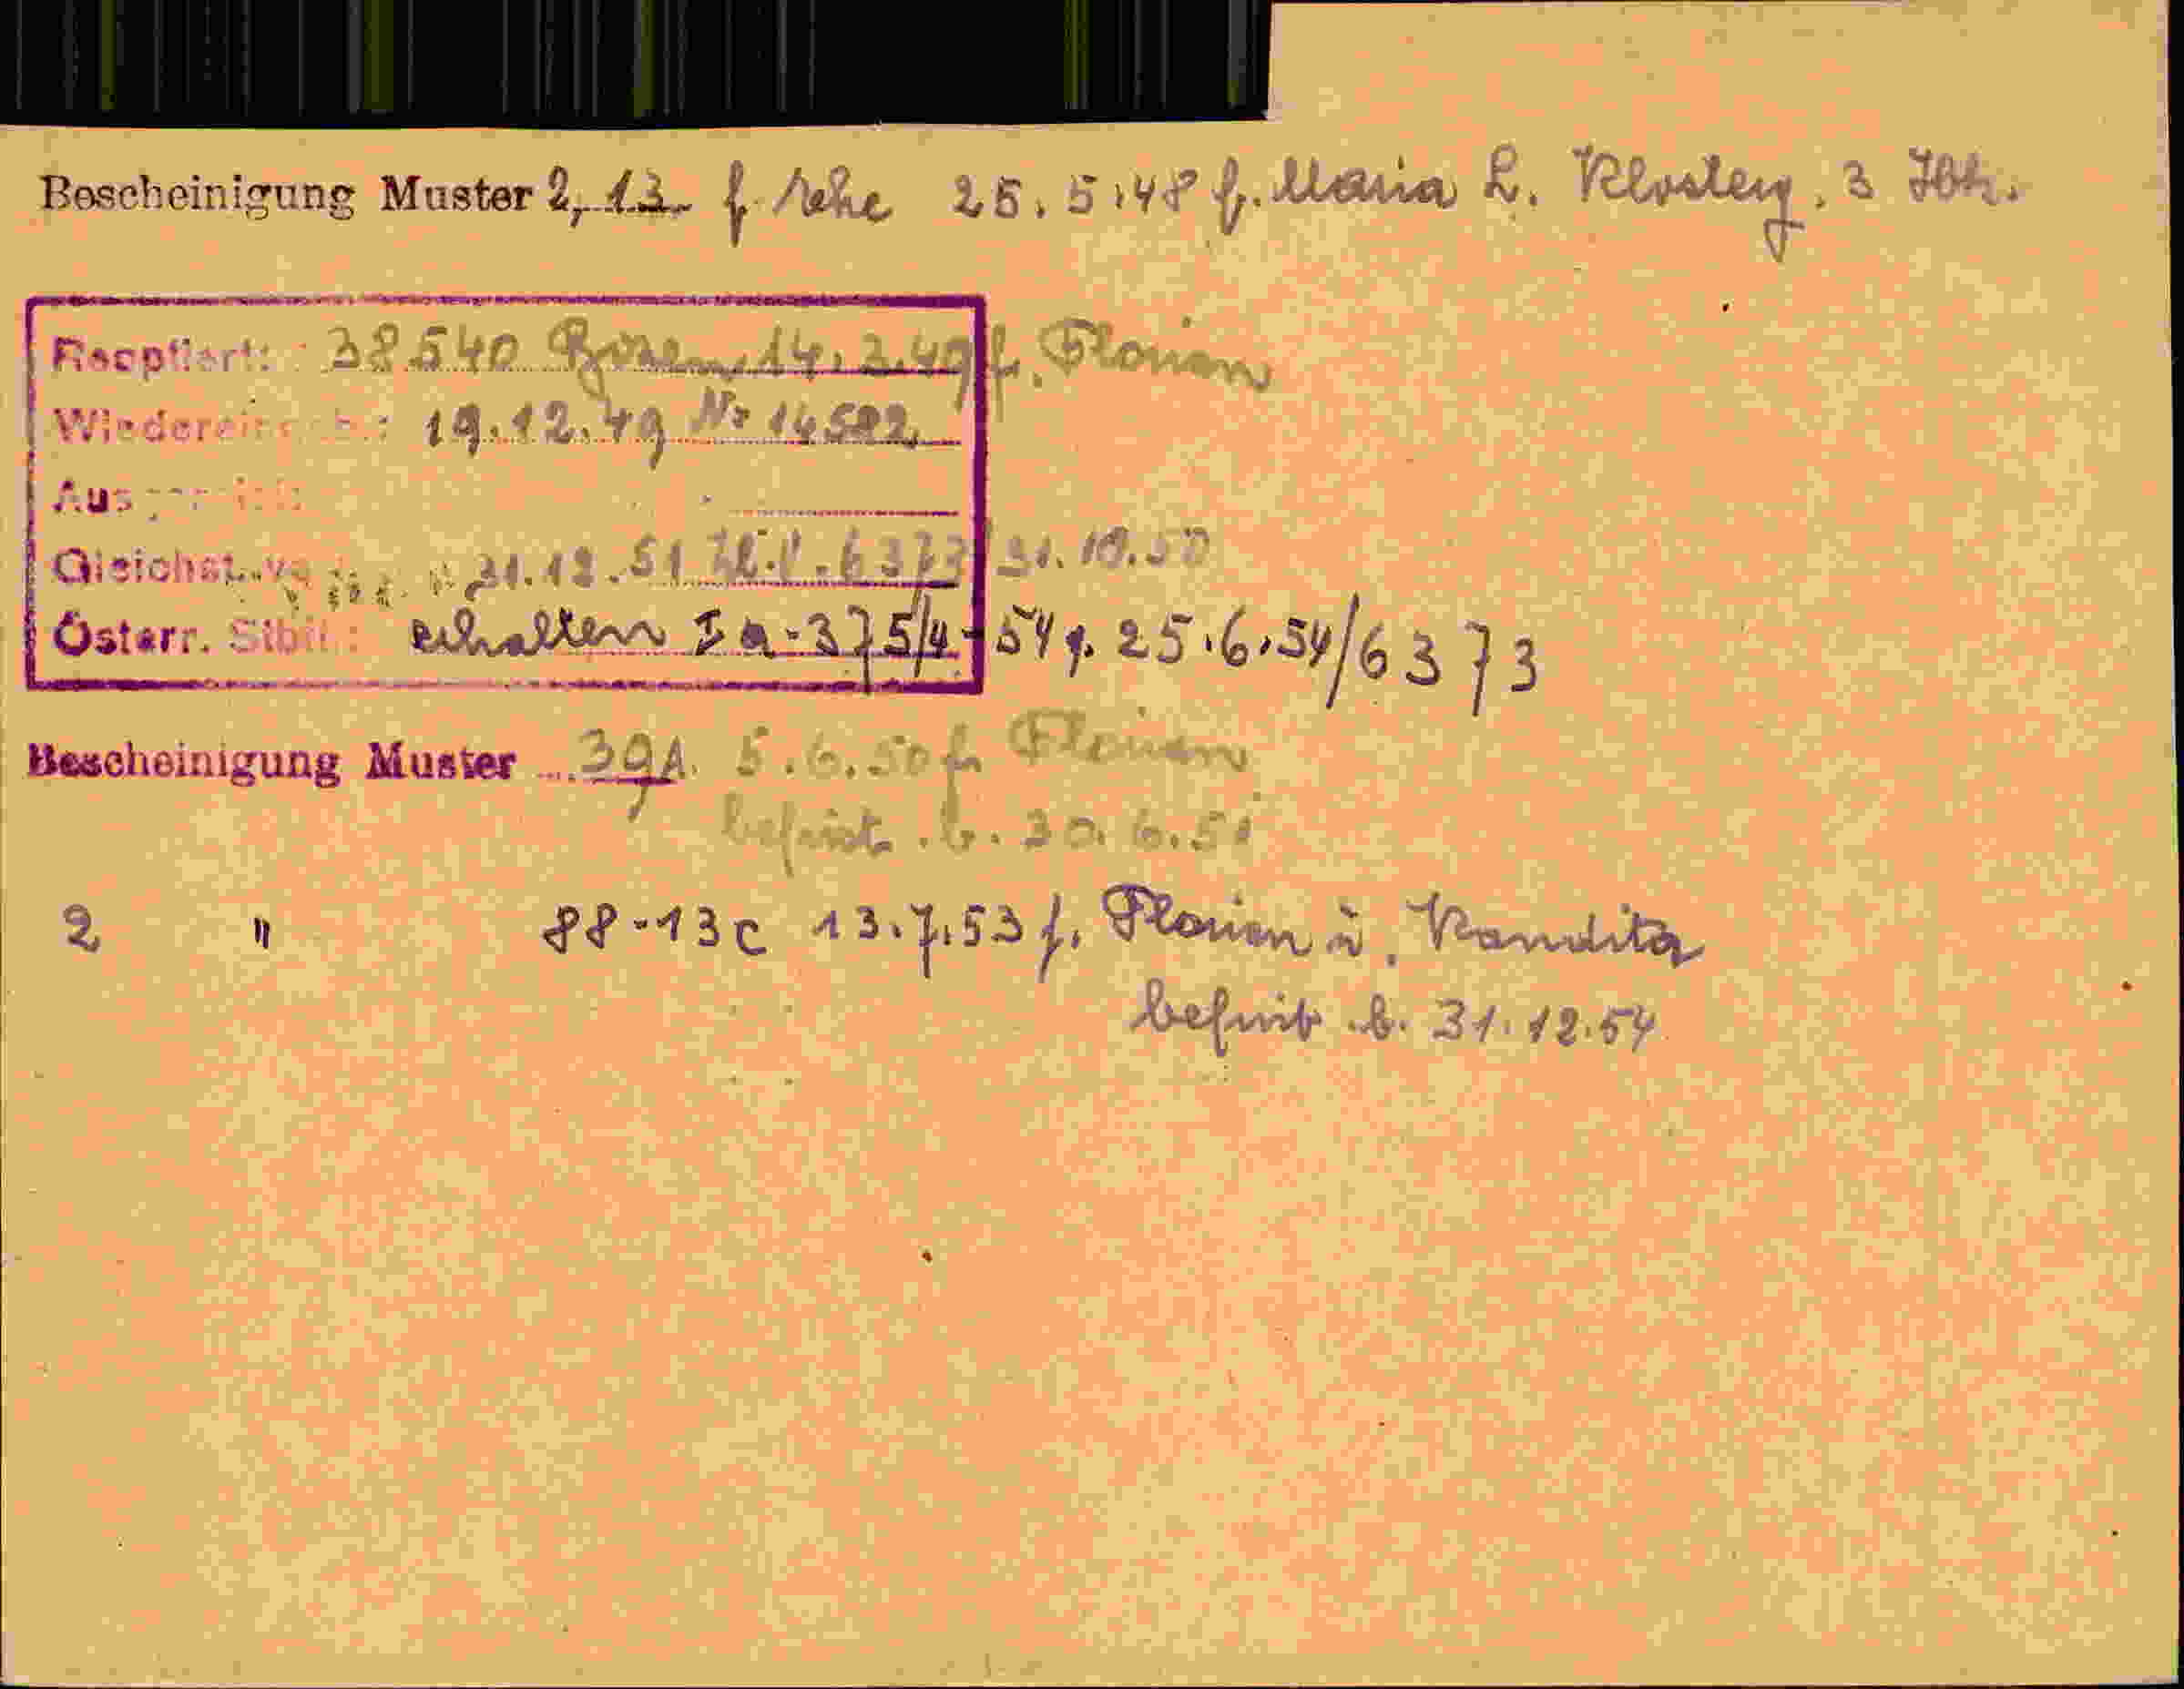 Bescheinigung Muster 2, 13. f. 25.5.48 f. Maria L. Klosterg. 3 Ibk.
Reoptiert: 38540 Bozen 14.3.49 f. Florian
Wiedereinb.: 19.12.49 Nr 14582
Gleichst. 31.12.51 6373 31.10.50
Österr. Stb.: erhalten Ia-375/4-54 v. 25.6.54/6373
Bescheinigung Muster 39A. 5.6.50 f. Florian
befrist. b. 30.6.51
2 " 88-13c 13.7.53 f. Florian u. Kandita
befrist. b. 31.12.54